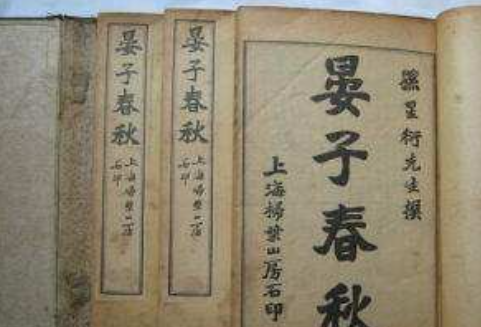 孫星衍先生撰
晏子春秋
上海掃葉山房石印
晏子春秋
上海掃葉山房
石印
晏子春秋
上海掃葉山房
石印